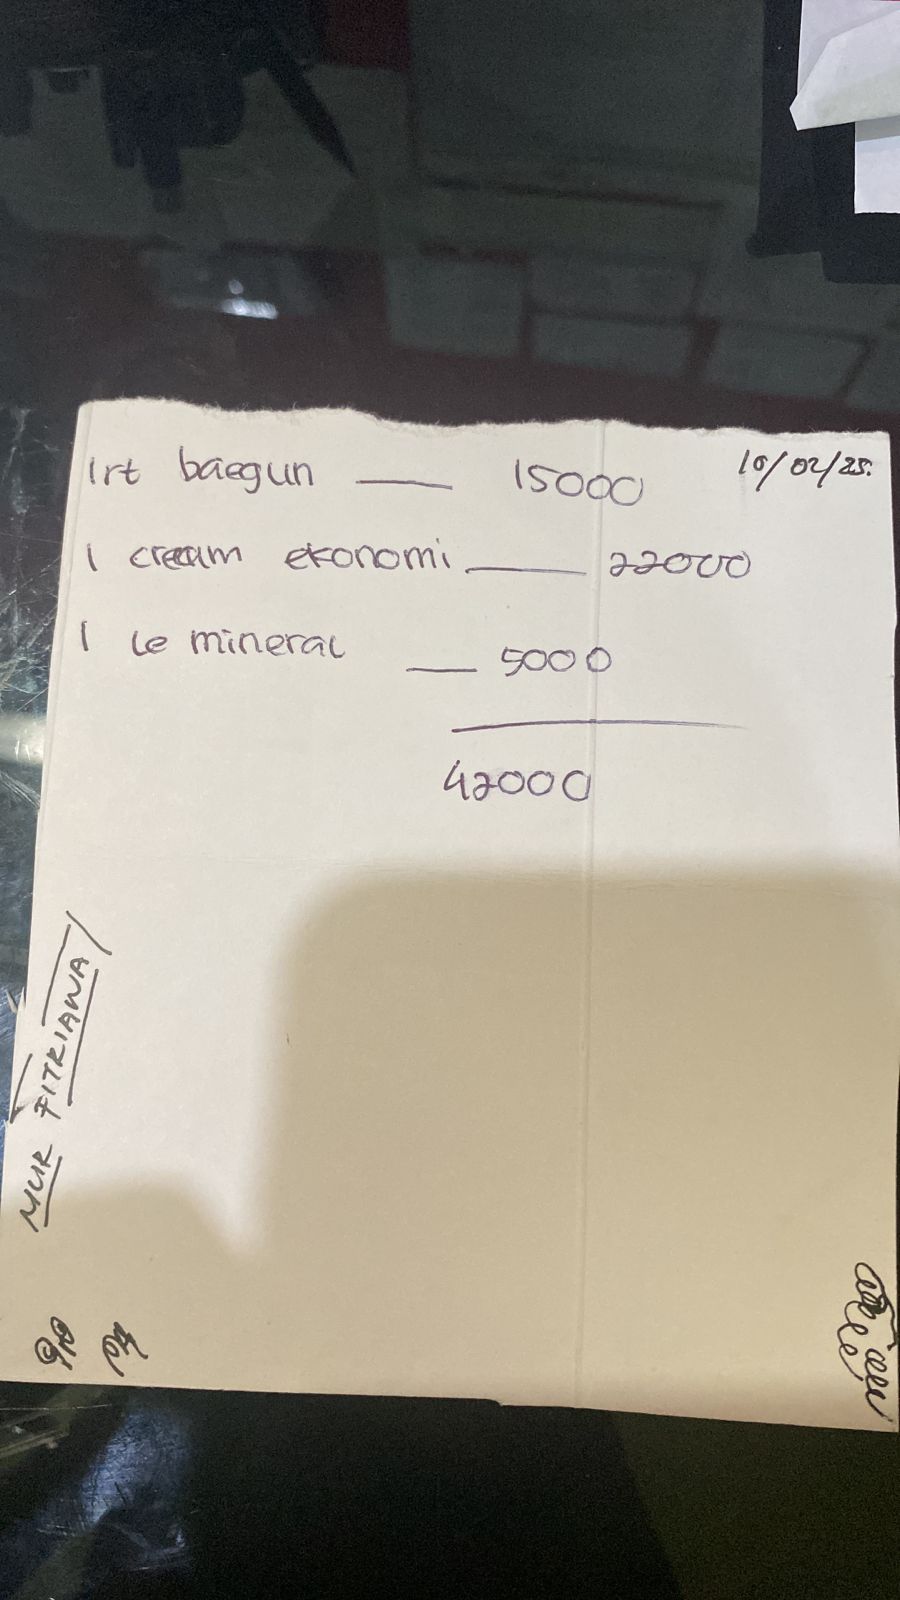 10/02/25.
1rt baegun — 15000
1 cream ekonomi — 22000
1 le mineral — 5000
42000
NUR FITRIAWA